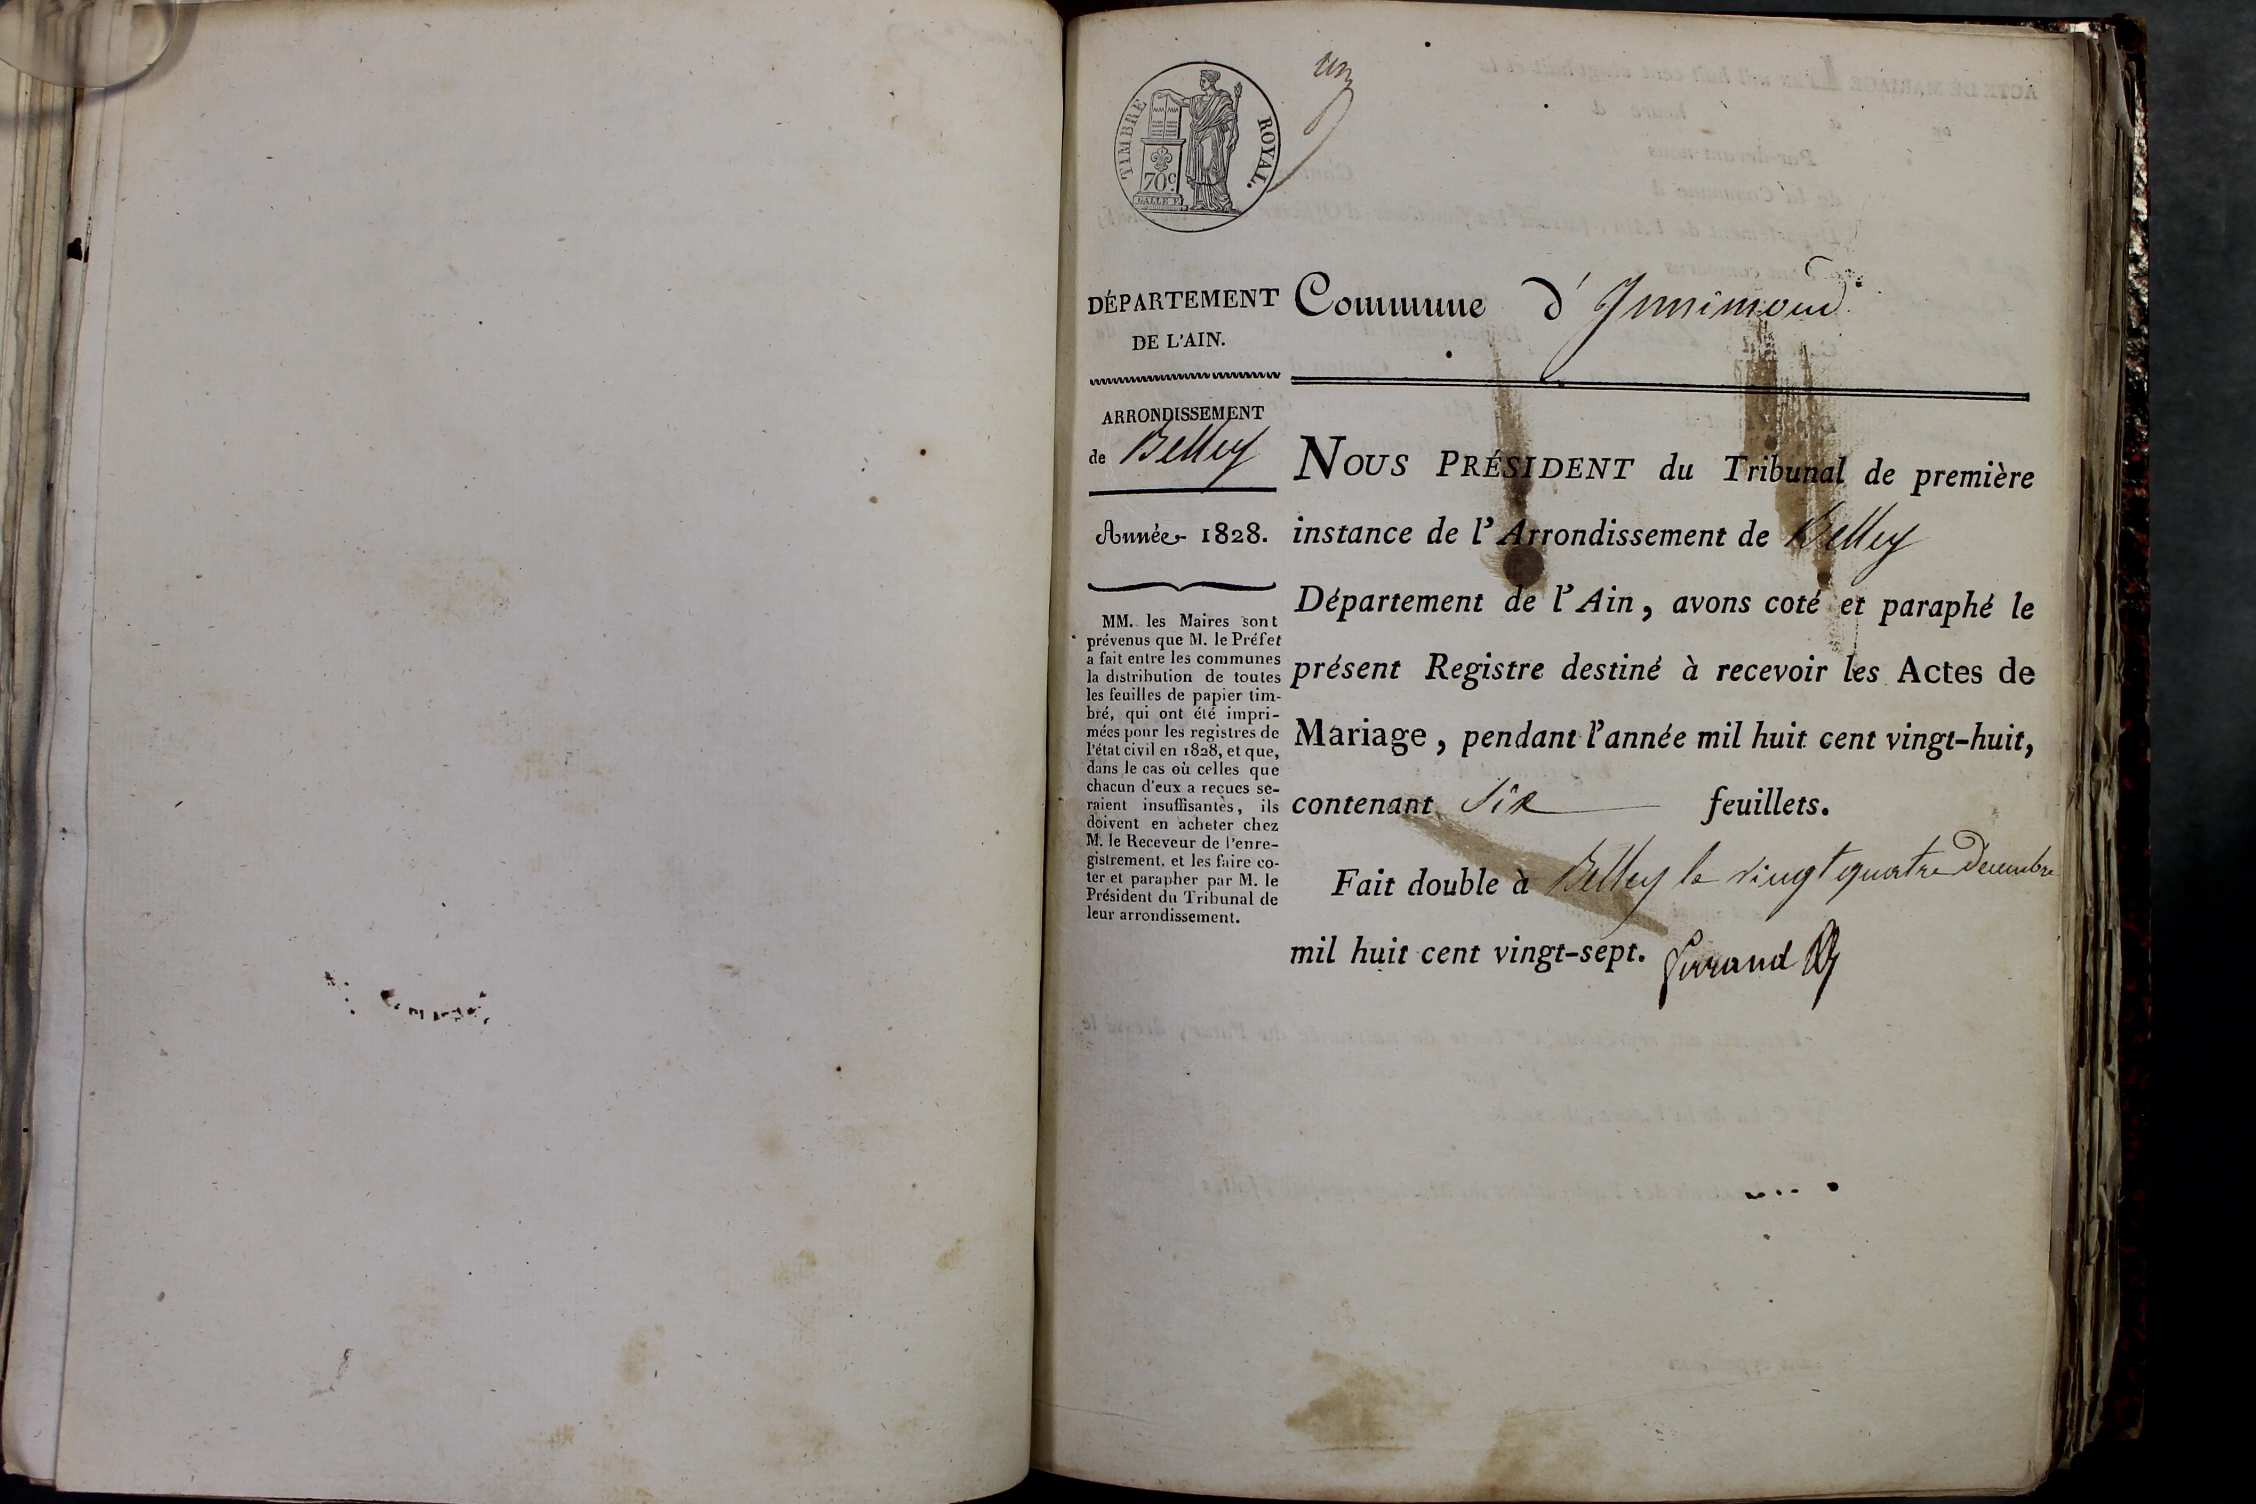 un
TIMBRE ROYAL.
70c.
DÉPARTEMENT
DE L'AIN.
ARRONDISSEMENT
de Belley
Année 1828.
MM. les Maires sont
prévenus que M. le Préfet
a fait entre les communes
la distribution de toutes
les feuilles de papier tim-
bré, qui ont été impri-
mées pour les registres de
l'état civil en 1828, et que,
dans le cas où celles que
chacun d'eux a reçues se-
raient insuffisantes, ils
doivent en acheter chez
M. le Receveur de l'enre-
gistrement, et les faire co-
ter et parapher par M. le
Président du Tribunal de
leur arrondissement.
Commune d'Innimond
NOUS PRÉSIDENT du Tribunal de première
instance de l'Arrondissement de Belley
Département de l'Ain, avons coté et paraphé le
présent Registre destiné à recevoir les Actes de
Mariage, pendant l'année mil huit cent vingt-huit,
contenant six feuillets.
Fait double à Belley le vingt quatre Decembre
mil huit cent vingt-sept.